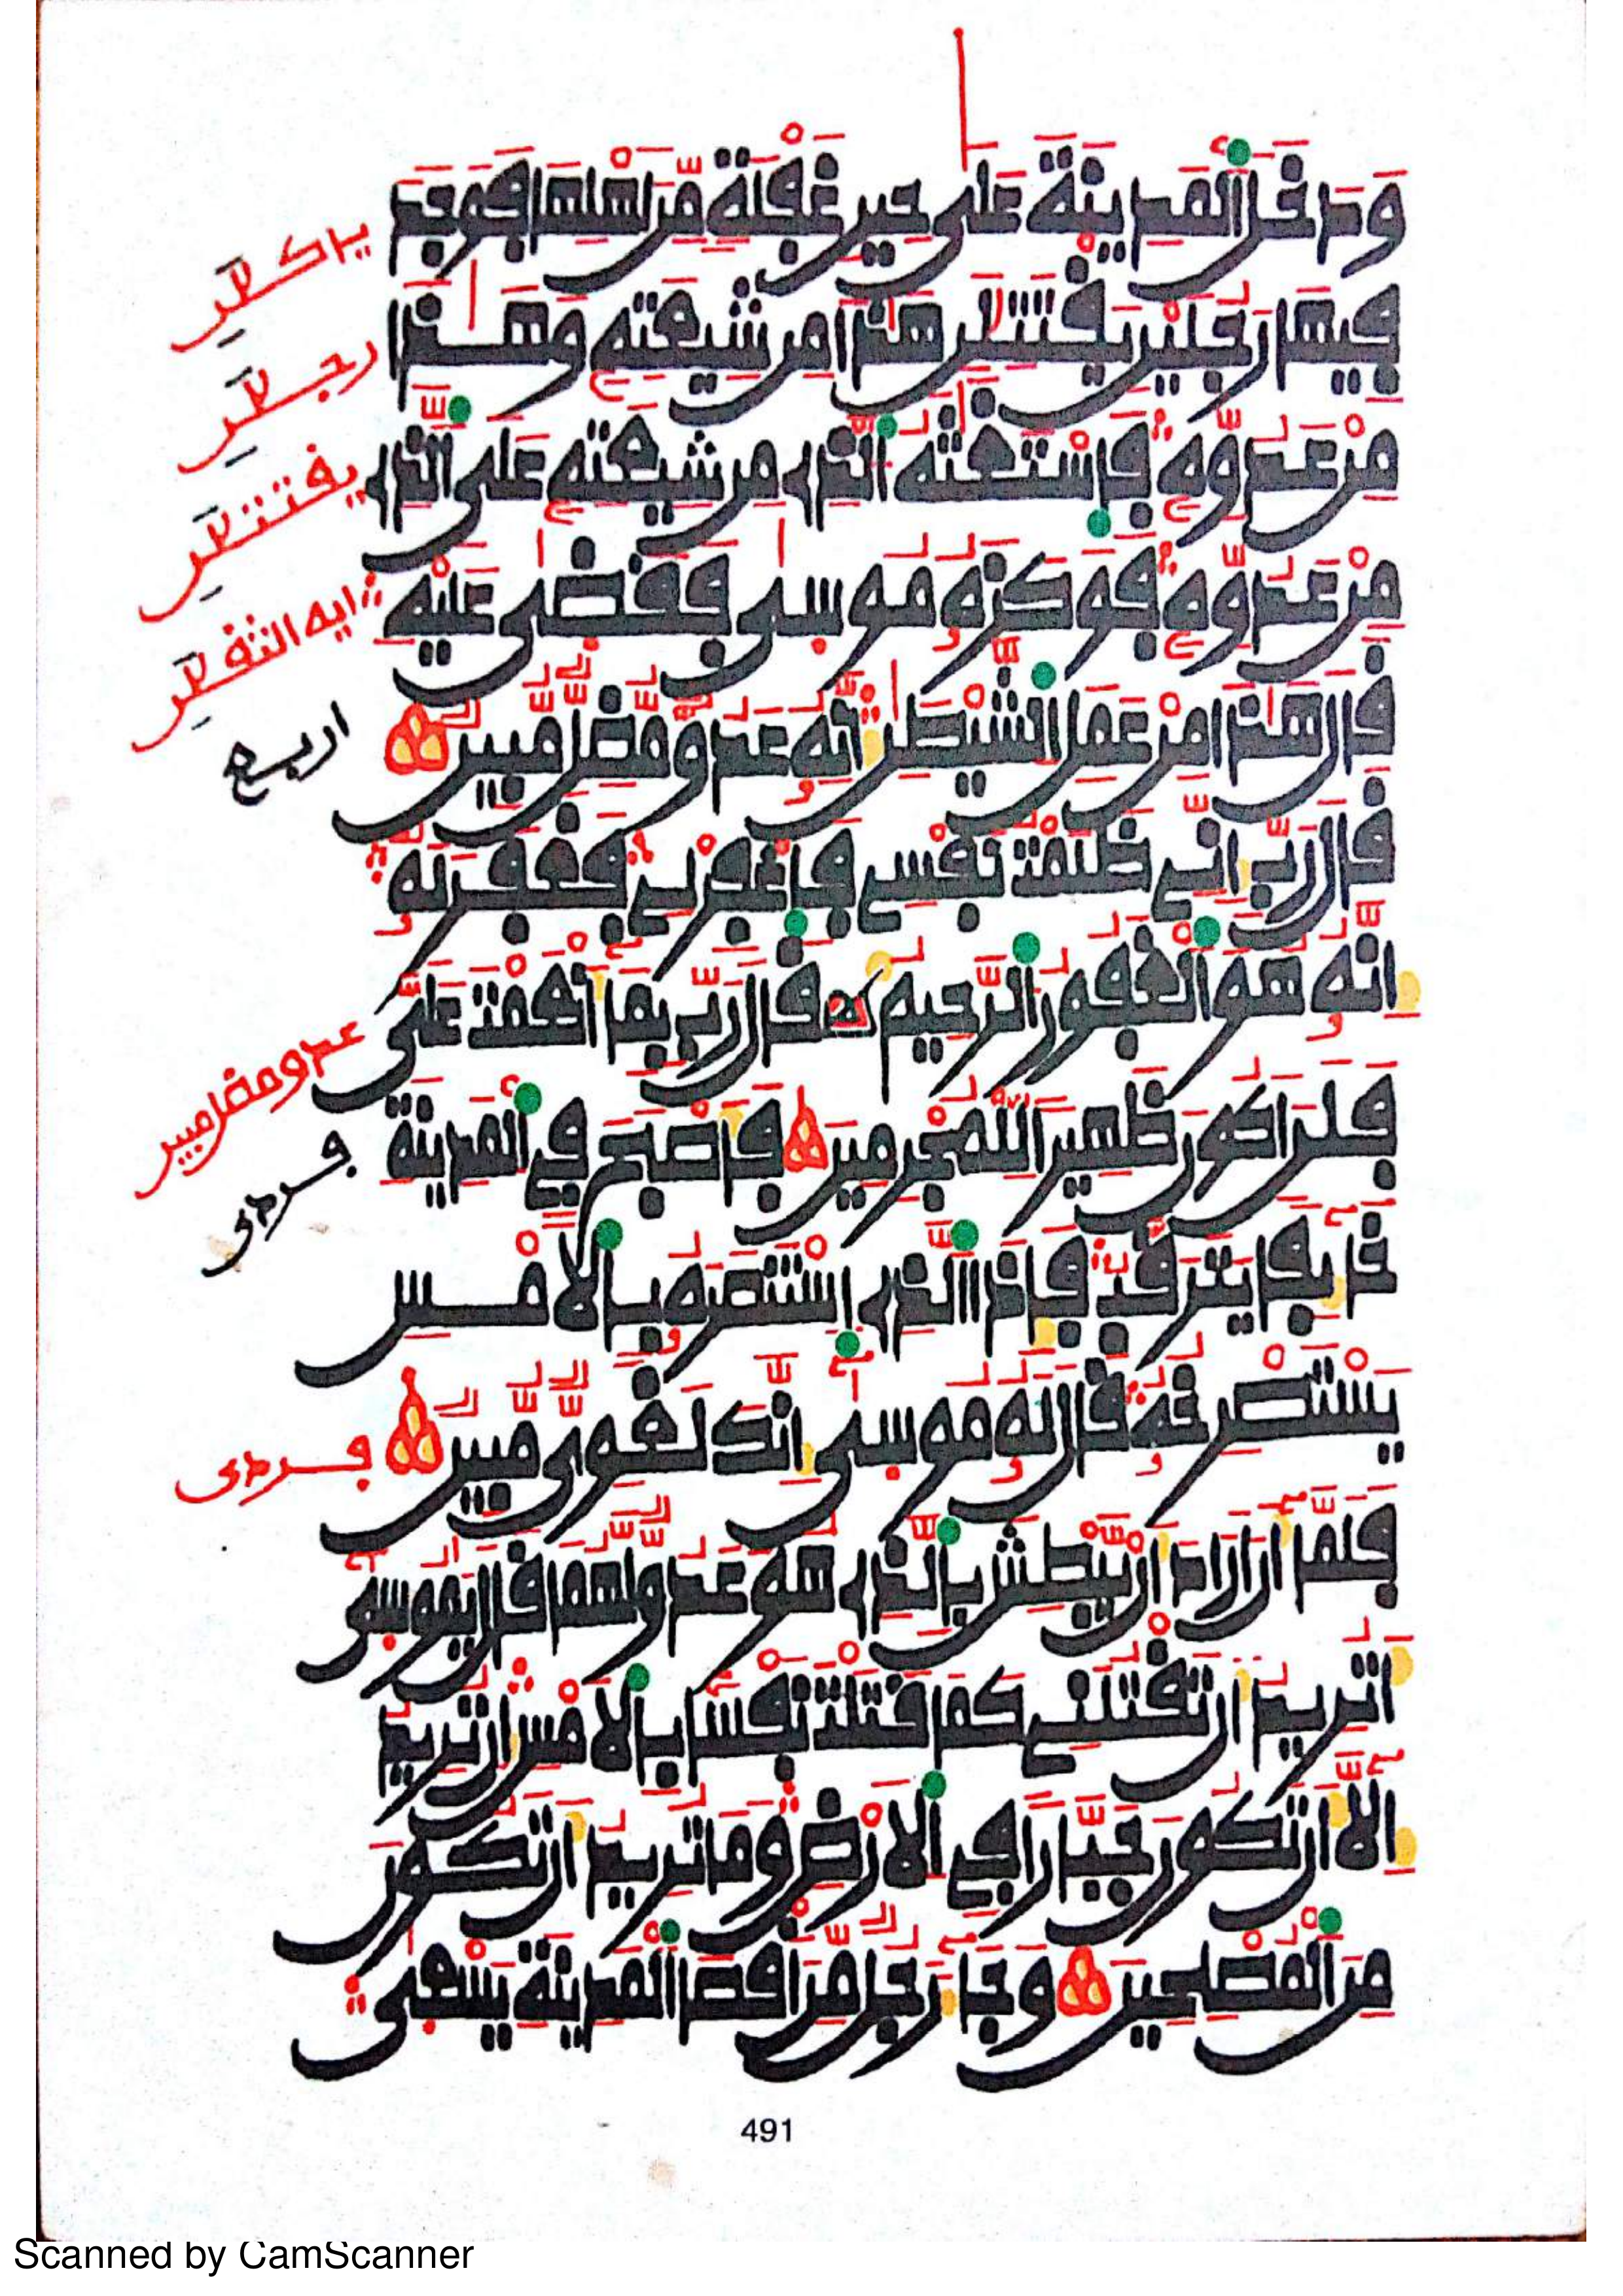 وَدَخَلَ ٱلْمَدِينَةَ عَلَىٰ حِينِ غَفْلَةٍ مِّنَ اَهْلِهَا فَوَجَدَ
فِيهَا رَجُلَيْنِ يَقْتَتِلَٰنِ هَٰذَا مِن شِيعَتِهِۦ وَهَٰذَا
مِنْ عَدُوِّهِۦ فَٱسْتَغَٰثَهُ ٱلَّذِے مِن شِيعَتِهِۦ عَلَى ٱلَّذِے
مِنْ عَدُوِّهِۦ فَوَكَزَهُۥ مُوسَىٰ فَقَضَىٰ عَلَيْهِ
قَالَ هَٰذَا مِنْ عَمَلِ ٱلشَّيْطَٰنِ إِنَّهُۥ عَدُوٌّ مُّضِلٌّ مُّبِينٌ
قَالَ رَبِّ إِنِّے ظَلَمْتُ نَفْسِے فَٱغْفِرْ لِے فَغَفَرَ لَهُۥ
إِنَّهُۥ هُوَ ٱلْغَفُورُ ٱلرَّحِيمُ قَالَ رَبِّ بِمَا أَنْعَمْتَ عَلَىَّ
فَلَنَ اَكُونَ ظَهِيرًا لِّلْمُجْرِمِينَ فَأَصْبَحَ فِے ٱلْمَدِينَةِ
خَآئِفًا يَتَرَقَّبُ فَإِذَا ٱلَّذِے ٱسْتَنصَرَهُۥ بِٱلَامْسِ
يَسْتَصْرِخُهُۥ قَالَ لَهُۥ مُوسَىٰ إِنَّكَ لَغَوِىٌّ مُّبِينٌ
فَلَمَّآ أَنَ اَرَادَ أَنْ يَّبْطِشَ بِٱلَّذِے هُوَ عَدُوٌّ لَّهُمَا قَالَ يَٰمُوسَىٰٓ
أَتُرِيدُ أَن تَقْتُلَنِے كَمَا قَتَلْتَ نَفْسًۢا بِٱلَامْسِ إِن تُرِيدُ
إِلَّآ أَن تَكُونَ جَبَّارًا فِے ٱلَارْضِ وَمَا تُرِيدُ أَن تَكُونَ
مِنَ ٱلْمُصْلِحِينَ وَجَآءَ رَجُلٌ مِّنَ اَقْصَا ٱلْمَدِينَةِ يَسْعَىٰ
رجلٰن
يقتتلٰن
ايه الثقلٰن
اربع
عدو مضل مبين
فردى
فردى
491
Scanned by CamScanner